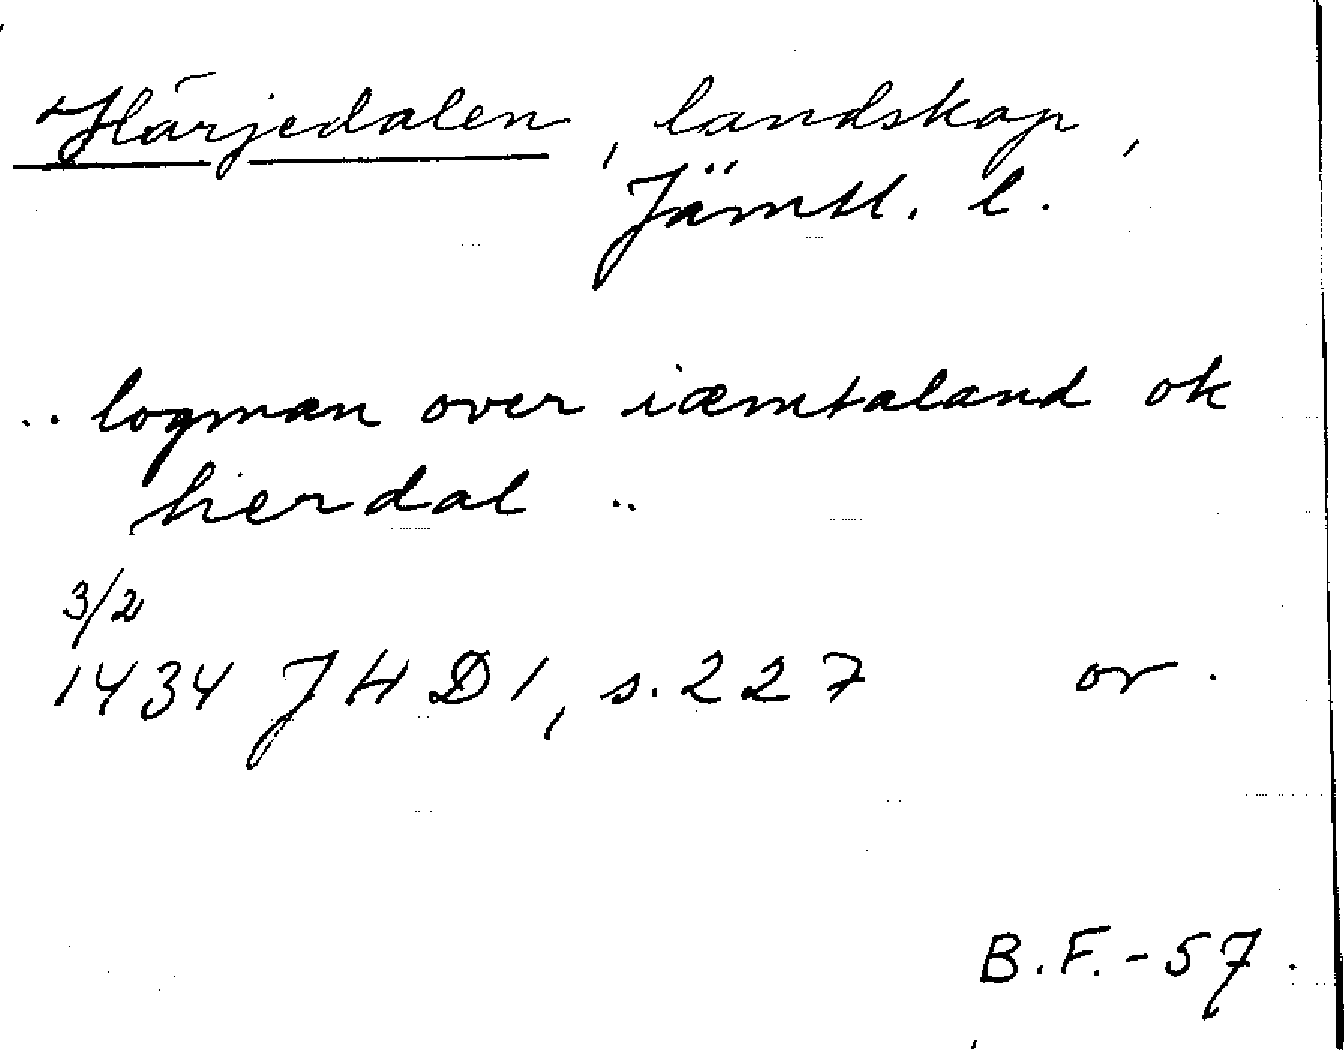 Härjedalen, landskap,
Jämtl. l.
.. logman over iæmtaland ok
hierdal ..
3/2
1434 JHD1, s. 227 or.
B.F.-57.